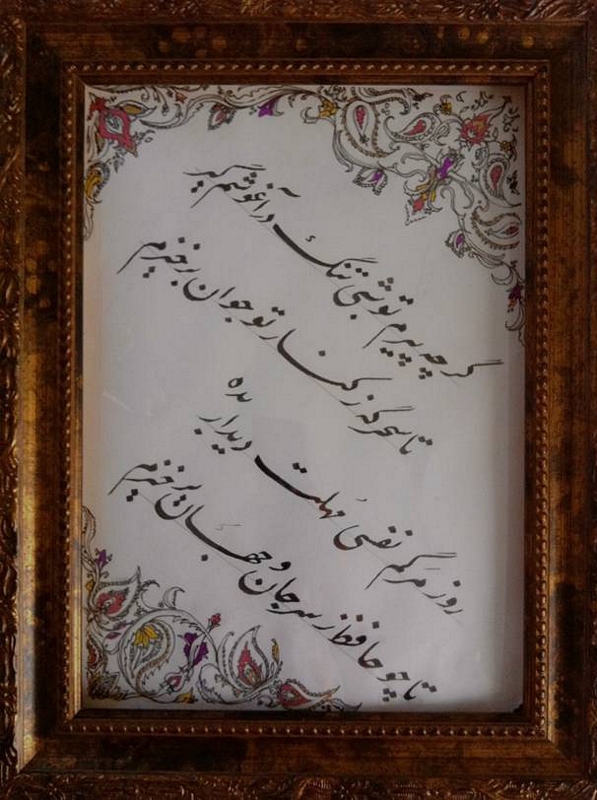 گر چه پیرم تو شبی تنگ در آغوشم گیر
تا سحرگه ز کنار تو جوان برخیزم
روز مرگم نفسی مهلت دیدار بده
تا چو حافظ از سر جان و جهان برخیزم